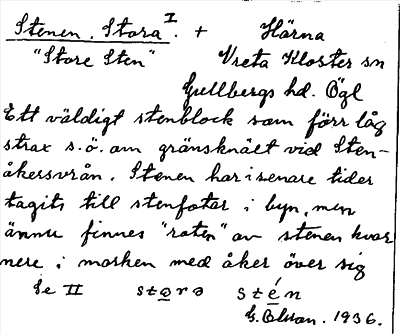 Stenen, Stora I. + Härna
"Store Sten" Vreta Kloster sn
Gullbergs hd. Ögl
Ett väldigt stenblock som förr låg
strax s.ö. om gränsknäet vid Sten-
åkersvrån. Stenen har i senare tider
tagits till stenfotar i byn, men
ännu finnes "roten" av stenen kvar
nere i marken med åker över sig
Se II stərə stén
G. Olsson. 1936.